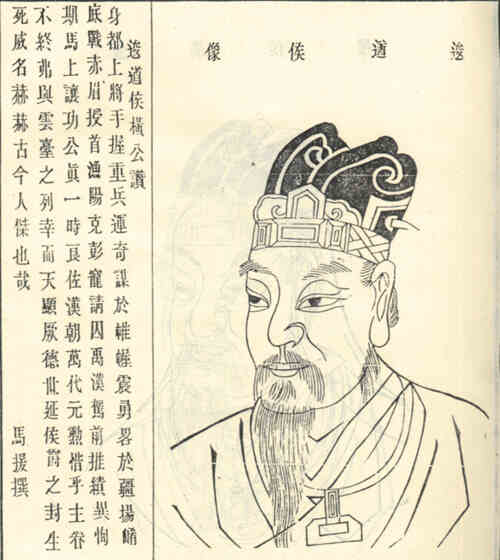 逡遒侯像
逡遒侯橫公讚
身都上將手握重兵運奇謀於帷幄震勇畧於疆場崤
底戰赤眉授首漁陽克彭寵請囚萬漢駕前推績異恂
期馬上讓功公眞一時良佐漢朝萬代元勳惜乎主眷
不終弗與雲臺之列幸而天顯厥德世延侯爵之封生
死威名赫赫古今人傑也哉 馬援撰